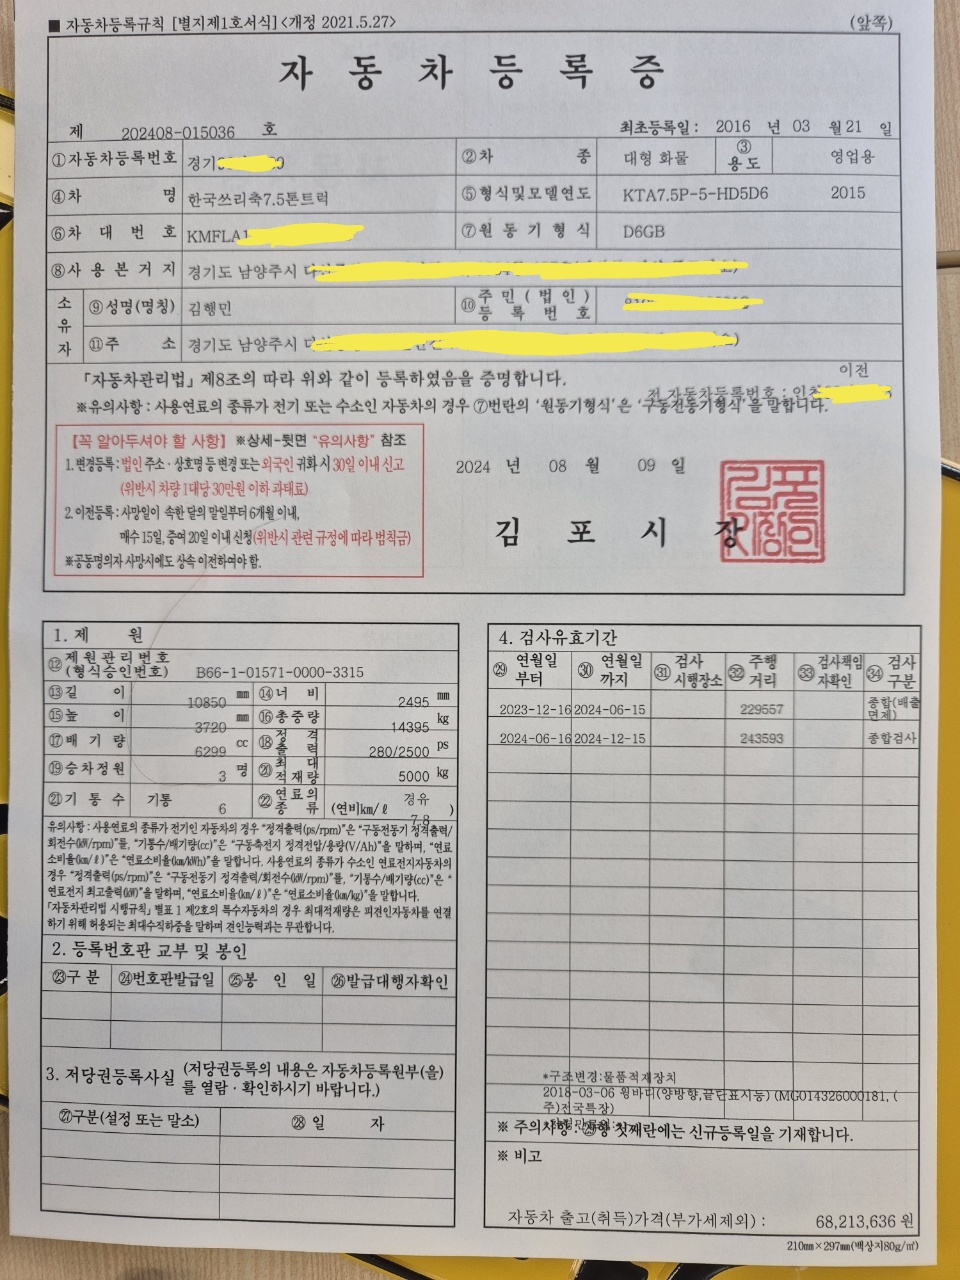 ■ 자동차등록규칙 [별지제1호서식]<개정 2021.5.27>
(앞쪽)
자 동 차 등 록 증
제 202408-015036 호
최초등록일 : 2016 년 03 월 21 일
①자동차등록번호 경기 ②차 종 대형 화물 ③용도 영업용
④차 명 한국쓰리축7.5톤트럭 ⑤형식및모델연도 KTA7.5P-5-HD5D6 2015
⑥차 대 번 호 KMFLA1 ⑦원 동 기 형 식 D6GB
⑧사 용 본 거 지 경기도 남양주시
소유자 ⑨성명(명칭) 김행민 ⑩주 민 ( 법 인 ) 등 록 번 호
⑪주 소 경기도 남양주시
「자동차관리법」 제8조의 따라 위와 같이 등록하였음을 증명합니다.
이전
전 자동차등록번호 : 인천
※유의사항 : 사용연료의 종류가 전기 또는 수소인 자동차의 경우 ⑦번란의 '원동기형식'은 '구동전동기형식'을 말합니다.
【꼭 알아두셔야 할 사항】 ※상세-뒷면 "유의사항" 참조
1. 변경등록 : 법인 주소 · 상호명 등 변경 또는 외국인 귀화 시 30일 이내 신고
(위반시 차량 1대당 30만원 이하 과태료)
2. 이전등록 : 사망일이 속한 달의 말일부터 6개월 이내,
매수 15일, 증여 20일 이내 신청(위반시 관련 규정에 따라 범칙금)
※공동명의자 사망시에도 상속 이전하여야 함.
2024 년 08 월 09 일
김 포 시 장
1. 제 원
⑫제 원 관 리 번 호 (형식승인번호) B66-1-01571-0000-3315
⑬길 이 10850 mm ⑭너 비 2495 mm
⑮높 이 3720 mm ⑯총 중 량 14395 kg
⑰배 기 량 6299 cc ⑱정 격 출 력 280/2500 ps
⑲승 차 정 원 3 명 ⑳최 대 적 재 량 5000 kg
㉑기 통 수 기통 6 ㉒연 료 의 종 류 경유 (연비km/ℓ 7.8 )
유의사항 : 사용연료의 종류가 전기인 자동차의 경우 "정격출력(ps/rpm)"은 "구동전동기 정격출력/
회전수(kW/rpm)"를, "기통수/배기량(cc)"은 "구동축전지 정격전압/용량(V/Ah)"을 말하며, "연료
소비율(km/ℓ)"은 "연료소비율(km/kWh)"을 말합니다. 사용연료의 종류가 수소인 연료전지자동차의
경우 "정격출력(ps/rpm)"은 "구동전동기 정격출력/회전수(kW/rpm)"를, "기통수/배기량(cc)"은 "
연료전지 최고출력(kW)"을 말하며, "연료소비율(km/ℓ)"은 "연료소비율(km/kg)"을 말합니다.
「자동차관리법 시행규칙」 별표 1 제2호의 특수자동차의 경우 최대적재량은 피견인자동차를 연결
하기 위해 허용되는 최대수직하중을 말하며 견인능력과는 무관합니다.
2. 등록번호판 교부 및 봉인
㉓구 분 ㉔번호판발급일 ㉕봉 인 일 ㉖발급대행자확인
3. 저당권등록사실 (저당권등록의 내용은 자동차등록원부(을)
를 열람 · 확인하시기 바랍니다.)
㉗구분(설정 또는 말소) ㉘일 자
4. 검사유효기간
㉙연월일부터 ㉚연월일까지 ㉛검사시행장소 ㉜주행거리 ㉝검사책임자확인 ㉞검사구분
2023-12-16 2024-06-15 229557 종합(배출면제)
2024-06-16 2024-12-15 243593 종합검사
*구조변경:물품적재장치
2018-03-06 윙바디(양방향,끝단표시등) (MG014326000181, (
주)전국특장)
※ 주의사항 : ㉙항 첫째란에는 신규등록일을 기재합니다.
※ 비고
자동차 출고(취득)가격(부가세제외) : 68,213,636 원
210mm×297mm(백상지80g/㎡)